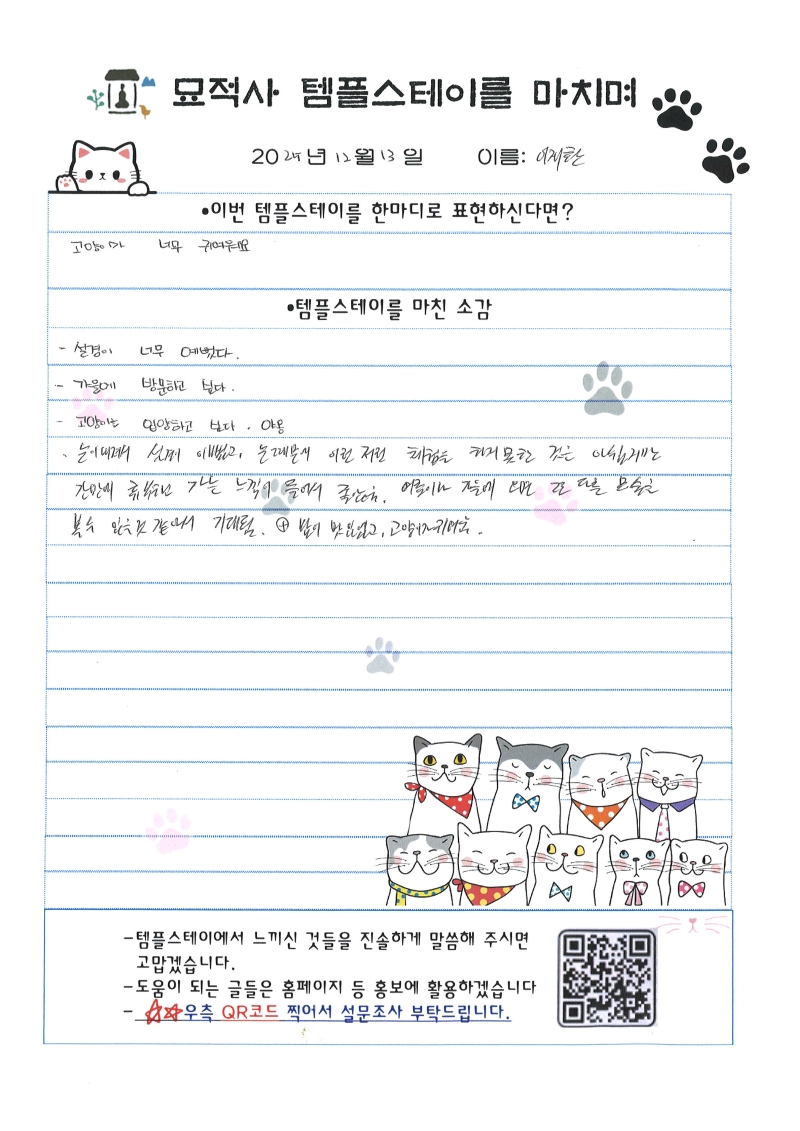 묘적사 템플스테이를 마치며
20 25 년 12 월 13 일 이름:
•이번 템플스테이를 한마디로 표현하신다면?
고양이가 너무 귀여워요
•템플스테이를 마친 소감
- 설경이 너무 예뻤다.
- 가을에 방문하고 싶다.
- 고양이는 입양하고 싶다. 야옹
눈이 내려서 실제 이뻤고, 눈 때문에 이런 저런 체험을 하지 못한 것은 아쉽게는
간만에 휴식하고 가는 느낌이 들어서 좋았음. 여름이나 가을에 오면 또 다른 모습을
볼수 있을것 같아서 기대됨. ⊕ 밥이 맛있었고, 고양이가 귀여움.
-템플스테이에서 느끼신 것들을 진솔하게 말씀해 주시면
고맙겠습니다.
-도움이 되는 글들은 홈페이지 등 홍보에 활용하겠습니다
- ☆☆우측 QR코드 찍어서 설문조사 부탁드립니다.